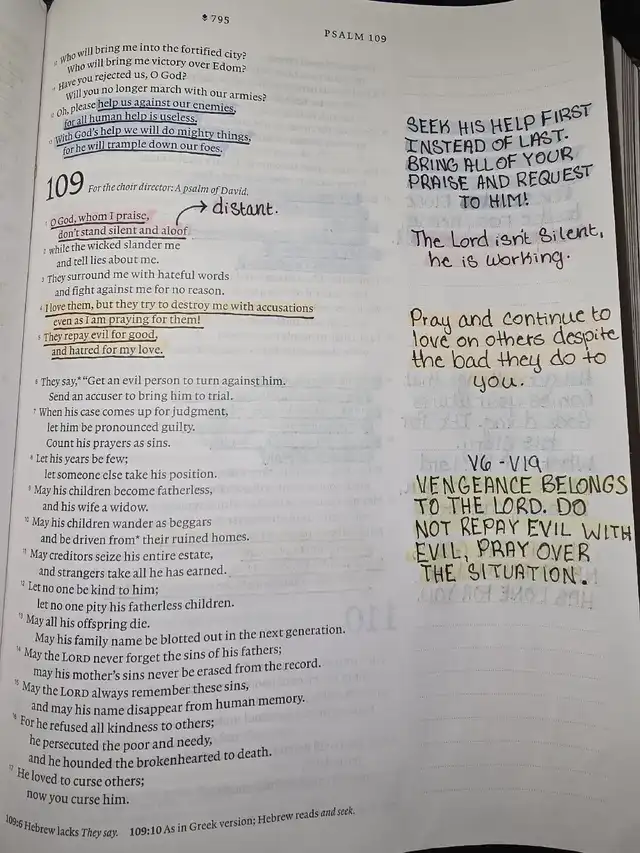 795
PSALM 109
11 Who will bring me into the fortified city?
Who will bring me victory over Edom?
11 Have you rejected us, O God?
Will you no longer march with our armies?
12 Oh, please help us against our enemies,
for all human help is useless.
13 With God's help we will do mighty things,
for he will trample down our foes.
SEEK HIS HELP FIRST
INSTEAD OF LAST.
BRING ALL OF YOUR
PRAISE AND REQUEST
TO HIM!
109 For the choir director: A psalm of David.
→ distant.
1 O God, whom I praise,
don't stand silent and aloof
2 while the wicked slander me
and tell lies about me.
3 They surround me with hateful words
and fight against me for no reason.
4 I love them, but they try to destroy me with accusations
even as I am praying for them!
5 They repay evil for good,
and hatred for my love.
The Lord isn't silent,
he is working.
Pray and continue to
love on others despite
the bad they do to
you.
6 They say,* "Get an evil person to turn against him.
Send an accuser to bring him to trial.
7 When his case comes up for judgment,
let him be pronounced guilty.
Count his prayers as sins.
8 Let his years be few;
let someone else take his position.
9 May his children become fatherless,
and his wife a widow.
10 May his children wander as beggars
and be driven from* their ruined homes.
11 May creditors seize his entire estate,
and strangers take all he has earned.
12 Let no one be kind to him;
let no one pity his fatherless children.
13 May all his offspring die.
May his family name be blotted out in the next generation.
14 May the LORD never forget the sins of his fathers;
may his mother's sins never be erased from the record.
15 May the LORD always remember these sins,
and may his name disappear from human memory.
16 For he refused all kindness to others;
he persecuted the poor and needy,
and he hounded the brokenhearted to death.
17 He loved to curse others;
now you curse him.
V6 - V19
VENGEANCE BELONGS
TO THE LORD. DO
NOT REPAY EVIL WITH
EVIL, PRAY OVER
THE SITUATION.
109:6 Hebrew lacks They say. 109:10 As in Greek version; Hebrew reads and seek.